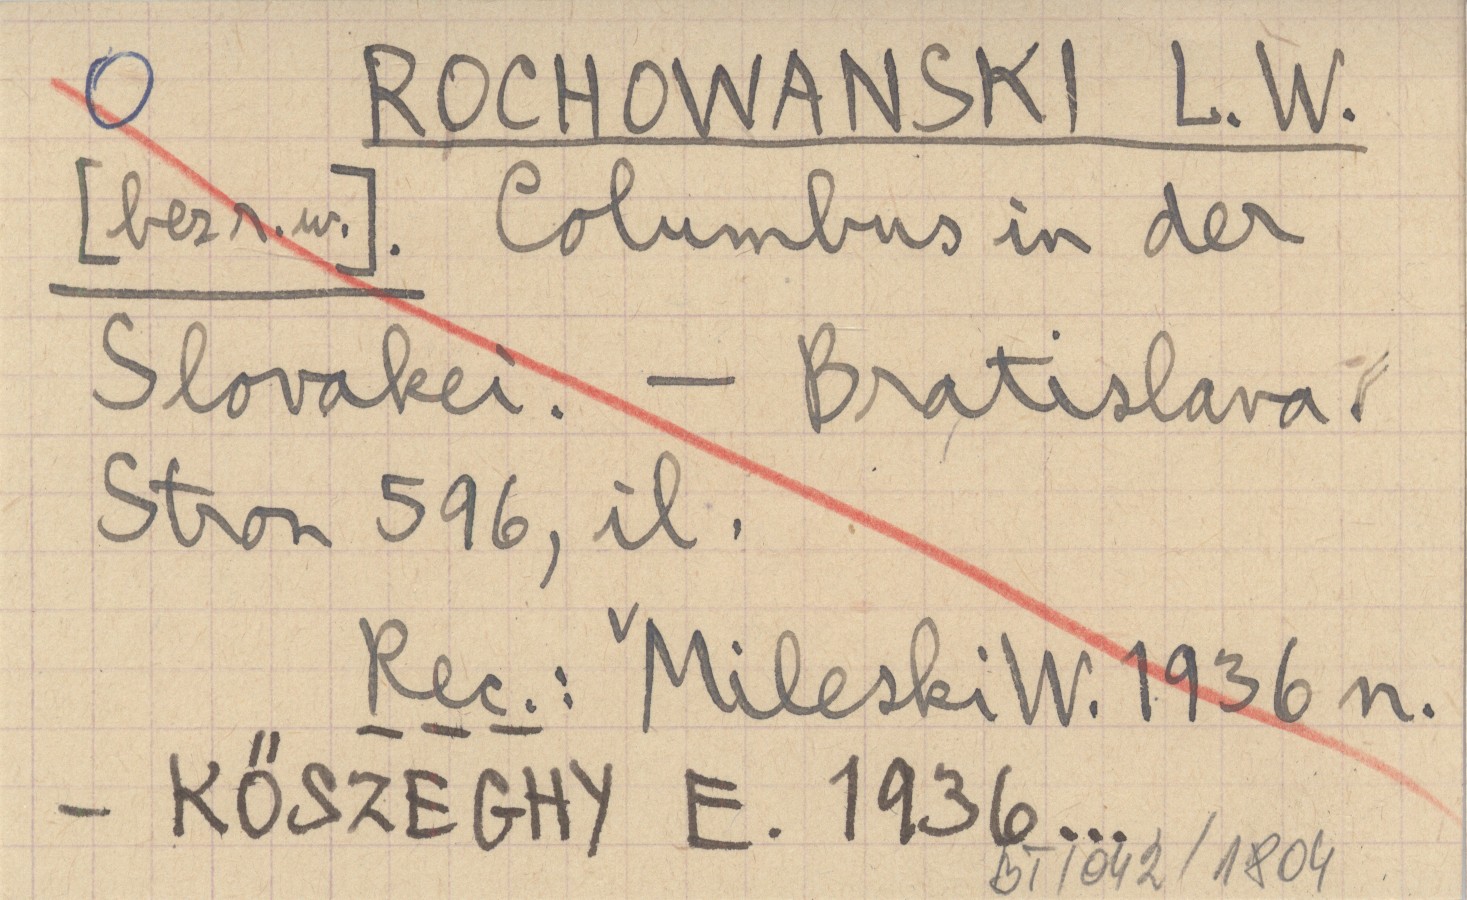 O ROCHOWANSKI L. W.
[bez r. w.]. Columbus in der
Slovakei. — Bratislava.
Stron 596, il.
Rec.: Mileski W. 1936 n.
- KŐSZEGHY E. 1936...
BT/042/1804